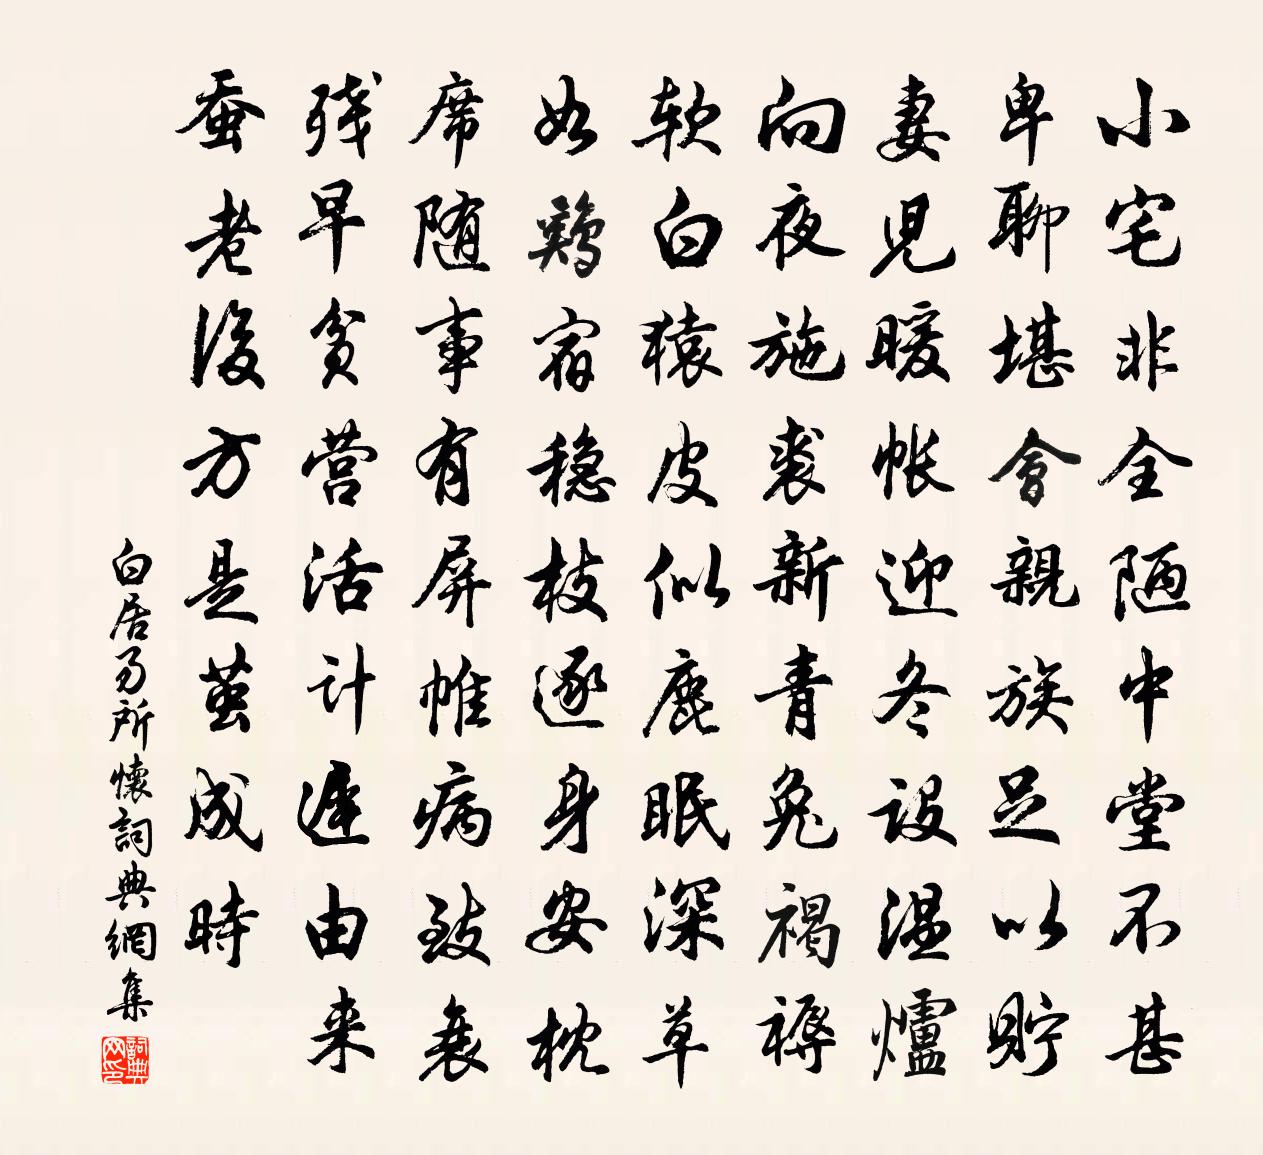 小宅非全陋中堂不甚
卑聊堪會親族足以貯
妻兒暖帳迎冬設温爐
向夜施裘新青兔褐褥
軟白猿皮似鹿眠深草
如鷄宿稳枝逐身安枕
席随事有屏帷病致衰
残早貧营活计遲由来
蚕老後方是茧成時
白居易所懷詞典網集
詞典网印